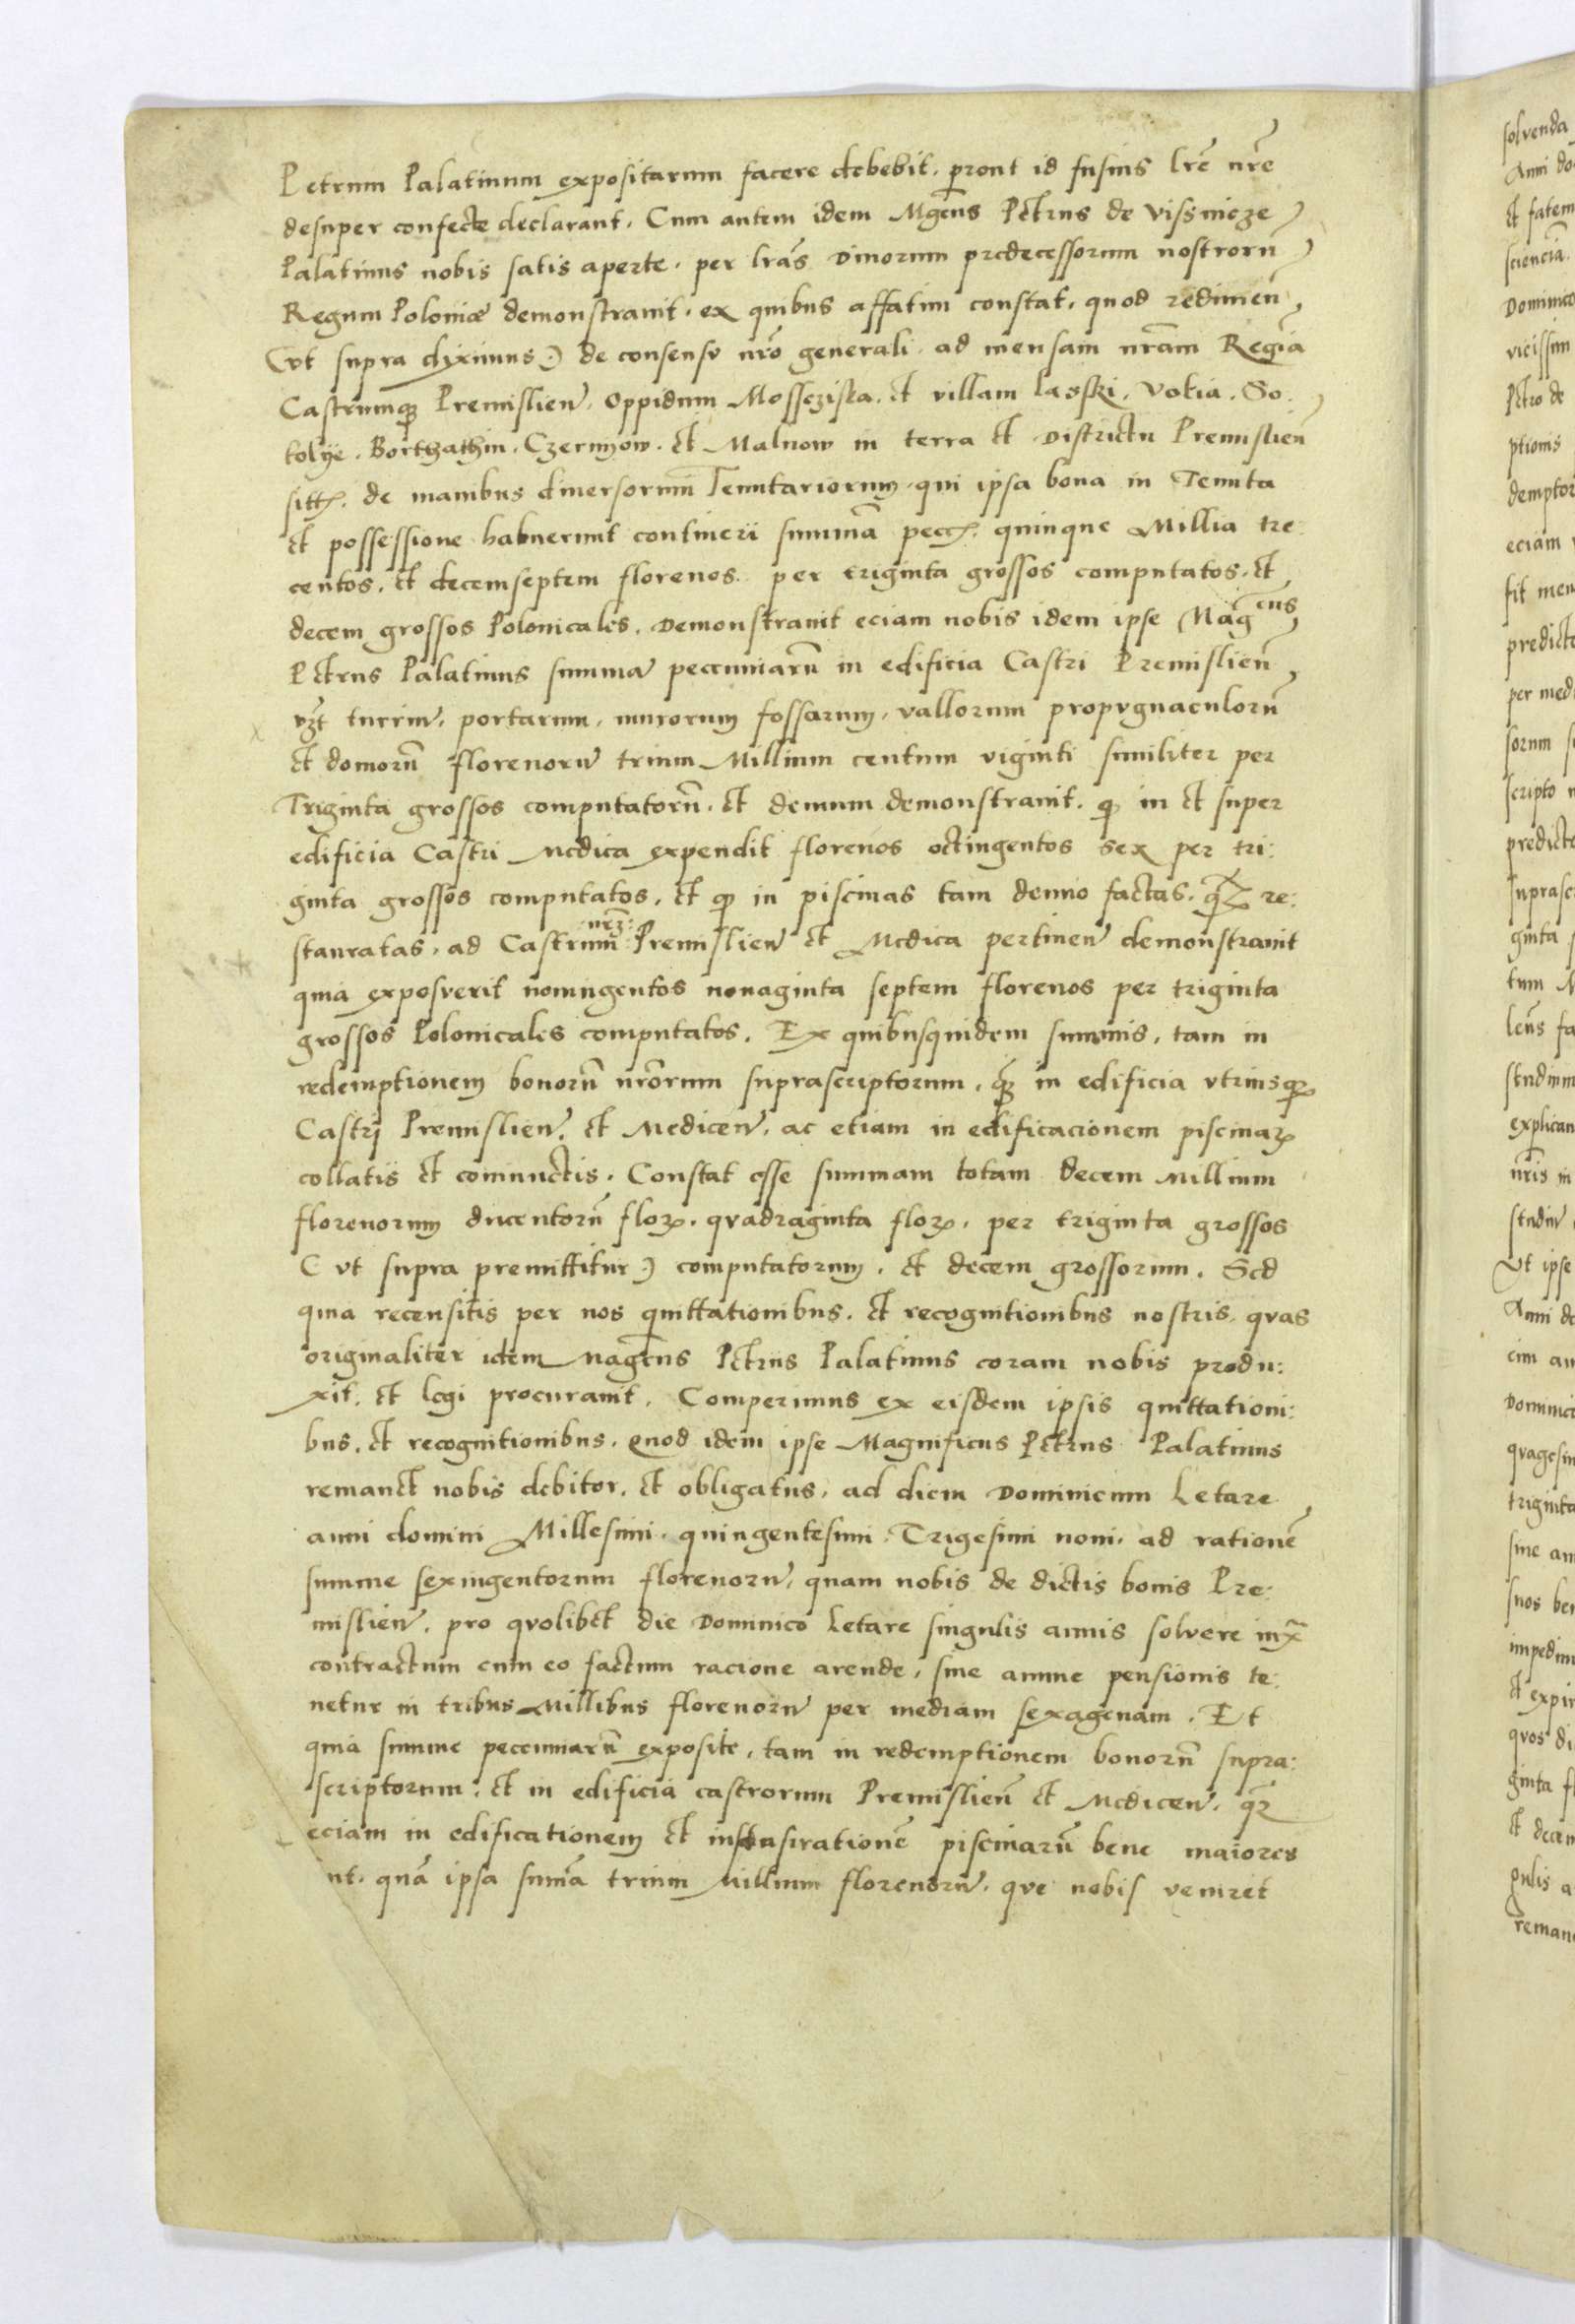 Petrum Palatinum expositarum facere debebit. prout id fusius lr̃e nr̃e
desuper confecte declarant. Cum autem idem Mgcus Petrus de vissnicze
Palatinus nobis satis aperte. per lr̃as Divorum predecessorum nostrorũ
Regum Poloniæ demonstravit. ex quibus affatim constat. quod redimeñ
(vt supra diximus.) de consensv nr̃o generali. ad mensam nr̃am Regiã
Castrumq; Premislieñ. oppidum Mosscziska. et villam lasski. Votia. So:
tolye. Borthathin. Czerniow. et Malnow in terra et Districtu Premislieñ
sitt. de manibus diuersorum Tenutariorum. qui ipsa bona in Tenuta
et possessione habuerunt contineri summã pecc. quinque Millia tre:
centos. et decemseptem florenos. per triginta grossos computatos. et
decem grossos Polonicales. Demonstrauit eciam nobis idem ipse Magcus
Petrus Palatinus summã peccuniarũ in edificia Castri Premislieñ
vzt turriũ. portarum. murorum fossarum. vallorum propvgnaculorũ
et domorũ florenorũ trium Millium centum viginti similiter per
Triginta grossos computatorũ. et demum demonstrauit. q in et super
edificia Castri Medica expendit florenos octingentos sex per tri:
ginta grossos computatos. et q in piscinas tam denuo factas. q re:
stauratas. ad Castrum nrm: Premislieñ et Medica pertineñ demonstrauit
quia exposverit noningentos nonaginta septem florenos per triginta
grossos Polonicales computatos. Ex quibusquidem summis. tam in
redemptionem bonorũ nr̃orum suprascriptorum. q in edificia vtriusq
Castri Premislieñ. et Mediceñ. ac etiam in edificacionem piscinar
collatis et coniunctis. Constat esse summam totam decem Millium
florenorum ducentorũ flor. qvadraginta flor. per triginta grossos
(vt supra premittitur.) computatorum. et decem grossorum. Sed
quia recensitis per nos quittationibus. et recognitionibus nostris. qvas
originaliter idem Magcus Petrus Palatinus coram nobis produ:
xit. et legi procurauit. Comperimus ex eisdem ipsis quittationi:
bus. et recognitionibus. Quod idem ipse Magnificus Petrus Palatinus
remanet nobis debitor. et obligatus. ad diem Dominicum Letare
anni domini Millesimi. quingentesimi. Trigesimi noni. ad rationẽ
summe sexingentorum florenorũ. quam nobis de dictis bonis Pre:
mislieñ. pro qvolibet die Dominico Letare singulis annis solvere iux
contractum cum eo factum racione arende. sine annue pensionis te:
netur in tribus Millibus florenorũ per mediam sexagenam. Et
quia summe peccuniarũ exposite. tam in redemptionem bonorũ supra:
scriptorum. et in edificia castrorum Premislieñ et Mediceñ. q
eciam in edificationem et instausirationẽ piscinarũ bene maiores
nt. quã ipsa summã trium Millium florenorũ. que nobis veniret